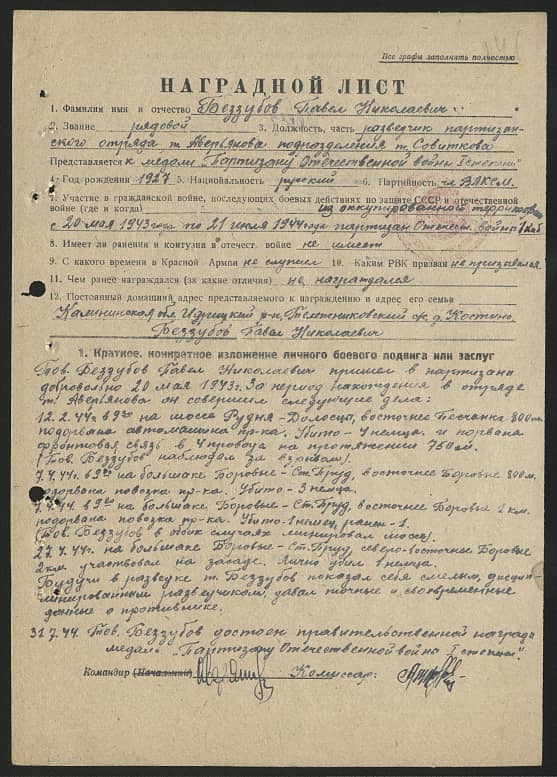 Все графы заполнить полностью
НАГРАДНОЙ ЛИСТ
1. Фамилия имя и отчество Беззубов Павел Николаевич
2. Звание рядовой 3. Должность, часть разведчик партизан-
ского отряда т. Аверьянова подразделения т. Совиткова
Представляется к медали „Партизану Отечественной войны I степени"
4. Год рождения 1927 5. Национальность русский 6. Партийность чл. ВЛКСМ.
7. Участие в гражданской войне, последующих боевых действиях по защите СССР и отечественной
войне (где и когда) на оккупированной территории
с 20 мая 1943 года по 21 июля 1944 года партизан Отечест. войны
8. Имеет ли ранения и контузии в отечест. войне не имеет
9. С какого времени в Красной Армии не служил 10. Каким РВК призван не призывался.
11. Чем ранее награждался (за какие отличия) не награждался
12. Постоянный домашний адрес представляемого к награждению и адрес его семьи
Калининская обл. Идрицкий р-н, д. Костино
Беззубов Павел Николаевич
1. Краткое, конкретное изложение личного боевого подвига или заслуг
Тов. Беззубов Павел Николаевич пришел в партизаны
добровольно 20 мая 1943г. За период нахождения в отряде
т. Аверьянова он совершил следующие дела:
12.2.44г. в 9⁰⁰ на шоссе Рудня-Долосца, восточнее Песчанка 800 м.
подорвана автомашина пр-ка. Убито-4 немца. и порвана
фронтовая связь в 4 провода на протяжении 750 м.
(Тов. Беззубов наблюдал за взрывом).
7.4.44г. в 9⁰⁰ на большаке Боровые-Ст. Пруд, восточнее Боровые 800 м.
подорвана повозка пр-ка. Убито-3 немца.
7.4.44. в 9⁰⁰ на большаке Боровые-Ст. Пруд, восточнее Боровые 2 км.
подорвана повозка пр-ка. Убито-1 немец, ранен-1.
(Тов. Беззубов в обоих случаях минировал шоссе).
27.4.44г. на большаке Боровые-Ст. Пруд, северо-восточнее Боровые
2 км участвовал на засаде. Лично убил 1 немца.
Будучи в разведке т. Беззубов показал себя смелым, дисцип-
линированным разведчиком, давал точные и своевременные
данные о противнике.
31.7.44. Тов. Беззубов достоен правительственной награды
медаль „Партизану Отечественной войны I степени".
Командир (Начальник) Комиссар: